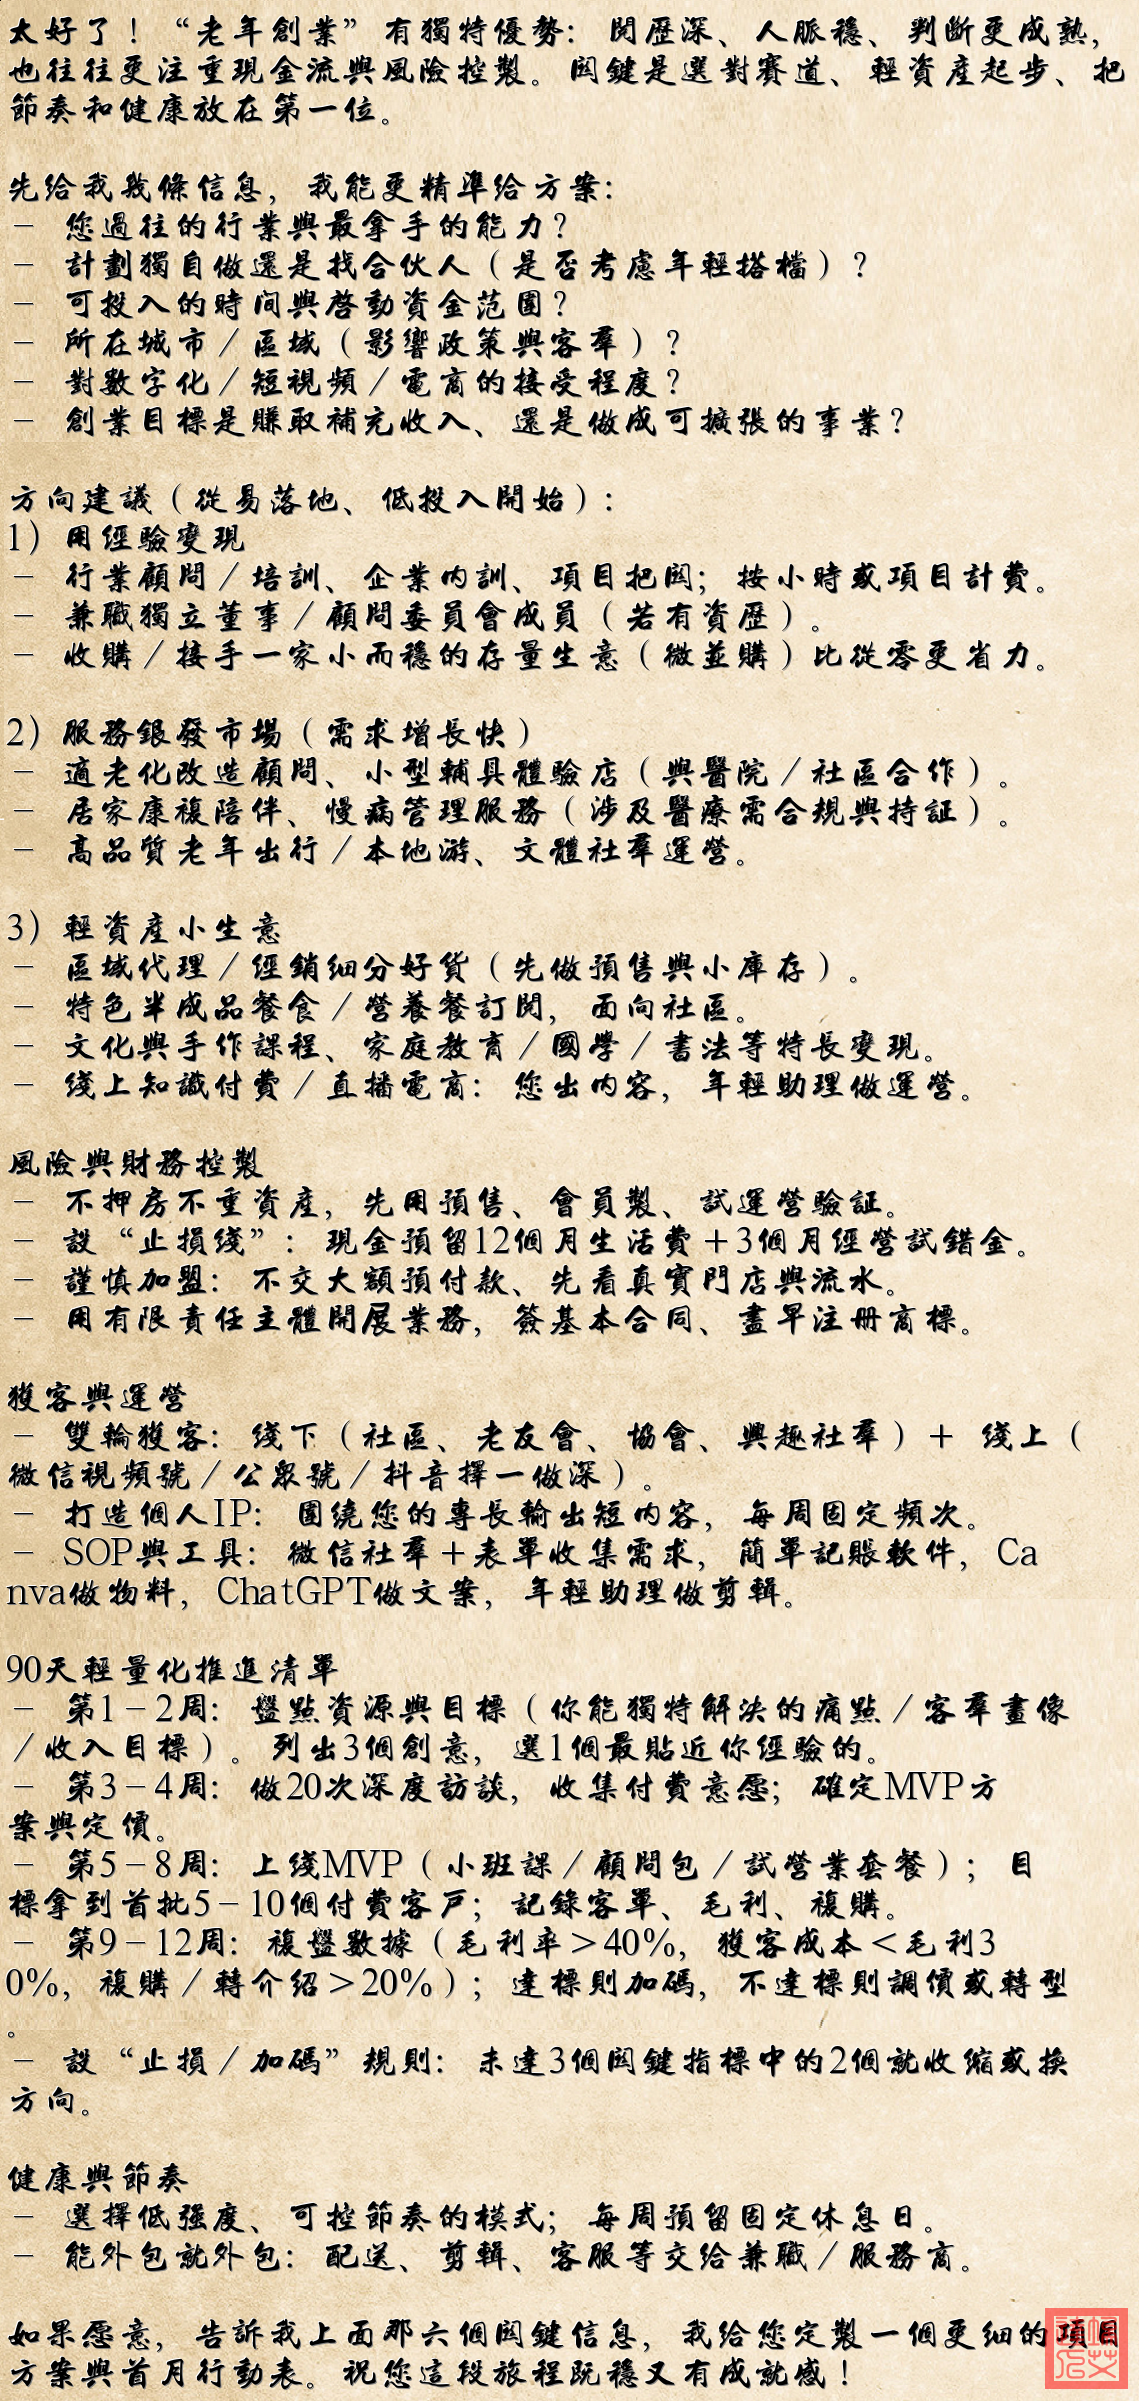 太好了！“老年創業”有獨特優勢：閱歷深、人脈穩、判斷更成熟，
也往往更注重現金流與風險控製。關鍵是選對賽道、輕資產起步、把
節奏和健康放在第一位。
先給我幾條信息，我能更精準給方案：
- 您過往的行業與最拿手的能力？
- 計劃獨自做還是找合伙人（是否考慮年輕搭檔）？
- 可投入的時間與啓動資金范圍？
- 所在城市/區域（影響政策與客羣）？
- 對數字化/短視頻/電商的接受程度？
- 創業目標是賺取補充收入、還是做成可擴張的事業？
方向建議（從易落地、低投入開始）：
1）用經驗變現
- 行業顧問/培訓、企業內訓、項目把關；按小時或項目計費。
- 兼職獨立董事/顧問委員會成員（若有資歷）。
- 收購/接手一家小而穩的存量生意（微並購）比從零更省力。
2）服務銀發市場（需求增長快）
- 適老化改造顧問、小型輔具體驗店（與醫院/社區合作）。
- 居家康複陪伴、慢病管理服務（涉及醫療需合規與持証）。
- 高品質老年出行/本地游、文體社羣運營。
3）輕資產小生意
- 區域代理/經銷細分好貨（先做預售與小庫存）。
- 特色半成品餐食/營養餐訂閱，面向社區。
- 文化與手作課程、家庭教育/國學/書法等特長變現。
- 綫上知識付費/直播電商：您出內容，年輕助理做運營。
風險與財務控製
- 不押房不重資產，先用預售、會員製、試運營驗証。
- 設“止損綫”：現金預留12個月生活費＋3個月經營試錯金。
- 謹慎加盟：不交大額預付款、先看真實門店與流水。
- 用有限責任主體開展業務，簽基本合同、盡早注冊商標。
獲客與運營
- 雙輪獲客：綫下（社區、老友會、協會、興趣社羣）＋ 綫上（
微信視頻號/公眾號/抖音擇一做深）。
- 打造個人IP：圍繞您的專長輸出短內容，每周固定頻次。
- SOP與工具：微信社羣＋表單收集需求，簡單記賬軟件，Ca
nva做物料，ChatGPT做文案，年輕助理做剪輯。
90天輕量化推進清單
- 第1-2周：盤點資源與目標（你能獨特解決的痛點/客羣畫像
/收入目標）。列出3個創意，選1個最貼近你經驗的。
- 第3-4周：做20次深度訪談，收集付費意愿；確定MVP方
案與定價。
- 第5-8周：上綫MVP（小班課/顧問包/試營業套餐）；目
標拿到首批5-10個付費客戶；記錄客單、毛利、複購。
- 第9-12周：複盤數據（毛利率＞40%，獲客成本＜毛利3
0%，複購/轉介紹＞20%）；達標則加碼，不達標則調價或轉型
。
- 設“止損/加碼”規則：未達3個關鍵指標中的2個就收縮或換
方向。
健康與節奏
- 選擇低強度、可控節奏的模式；每周預留固定休息日。
- 能外包就外包：配送、剪輯、客服等交給兼職/服務商。
如果愿意，告訴我上面那六個關鍵信息，我給您定製一個更細的項目
方案與首月行動表。祝您這段旅程既穩又有成就感！